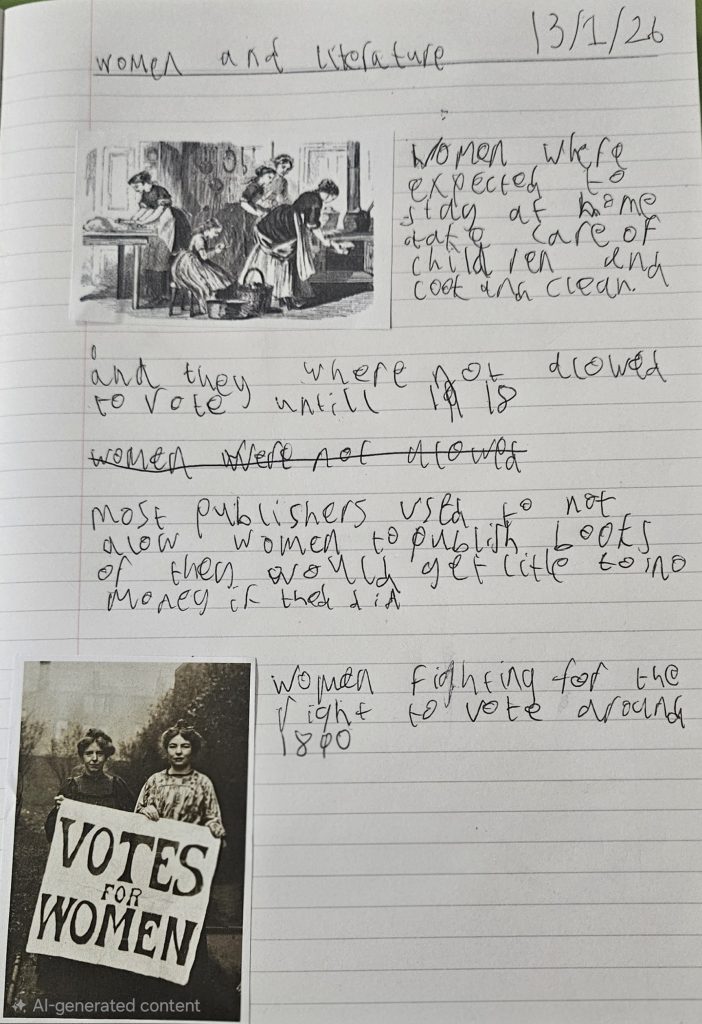 women and literature
13/1/26
women where
expected to
stay at home
take care of
children and
cook and clean.
and they where not alowed
to vote untill 1918
women where not alowed
most publishers used to not
alow women to publish books
or they would get litle to no
money if they did
women fighting for the
right to vote around
VOTES
FOR
WOMEN
AI-generated content